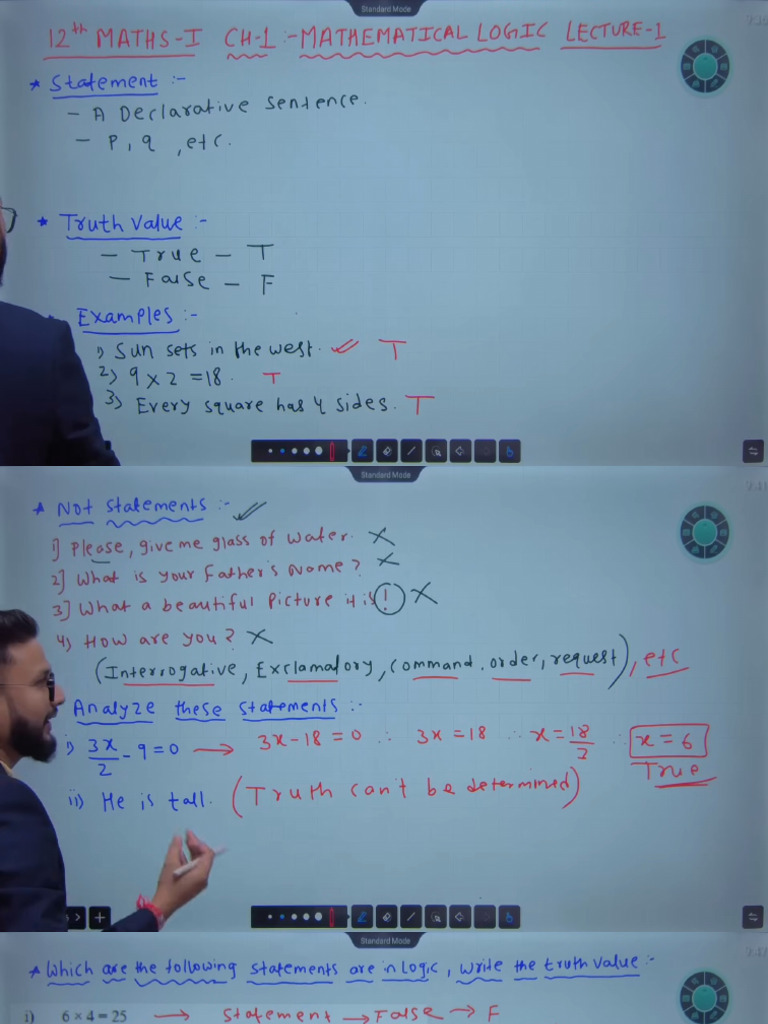 Standard Mode
12th MATHS-I CH-1 :- MATHEMATICAL LOGIC LECTURE-1
* Statement :-
- A Declarative Sentence.
- P, q, etc.
* Truth Value :-
- True - T
- False - F
Examples :-
1) Sun sets in the west. ✓ T
2) 9 × 2 = 18. T
3) Every square has 4 sides. T
Standard Mode
* Not statements :- ✓
1] Please, give me glass of water. ×
2] What is your Father's Name? ×
3] What a beautiful Picture it is! ×
4) How are you? ×
(Interrogative, Exclamatory, command, order, request), etc
Analyze these statements :-
i) 3x/2 - 9 = 0 → 3x - 18 = 0 ∴ 3x = 18 ∴ x = 18/3 ∴ x = 6
True
ii) He is tall. (Truth can't be determined)
Standard Mode
* Which are the following statements are in logic, write the truth value :-
i) 6 × 4 = 25 → Statement → False → F